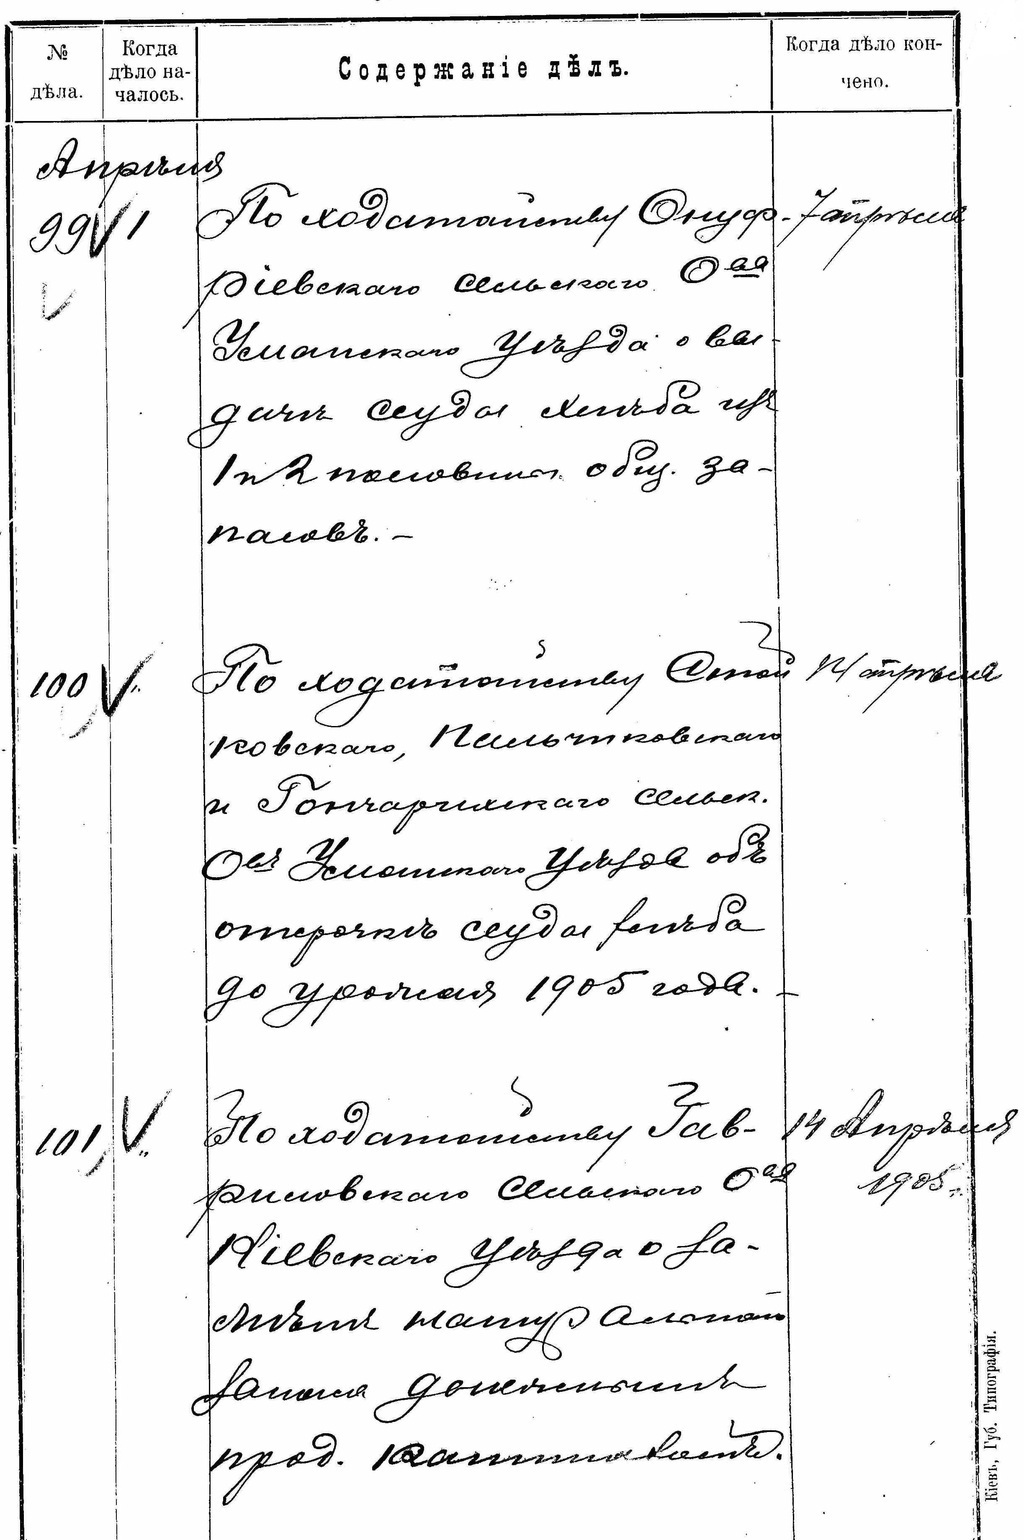 № дѣла.
Когда дѣло на-чалось.
Содержаніе дѣлъ.
Когда дѣло кон-чено.
Апрѣля
99 1 По ходатайству Онуф- 7 апрѣля
ріевскаго сельскаго О-ва
Уманскаго уѣзда о вы-
дачѣ ссуды хлѣба изъ
1 и 2 половины общ. за-
пасовъ. –
100 " По ходатайству 14 апрѣля
ковскаго, Пальчиковскаго
и Гончарихскаго сельск.
О-въ Уманскаго уѣзда объ
отсрочкѣ ссуды хлѣба
до урожая 1905 года. –
101 " По ходатайству Гав- 14 Апрѣля
риловскаго сельскаго О-ва 1905
Кіевскаго уѣзда о за-
мѣнѣ натуральной
запаса денежнымъ
прод. капиталомъ.
Кіевъ, Губ. Типографія.